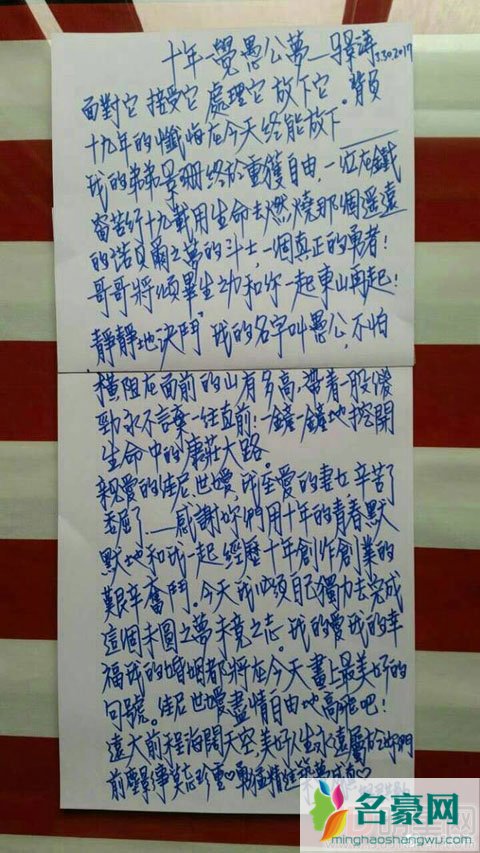 十年一覺愚公夢— 3.30.2017
面對它 接受它 處理它 放下它。背負
十九年的懺悔在今天終能放下
我的弟弟景珊終於重獲自由，一位在鐵
窗苦行十九載用生命去燃燒那個遙遠
的諾貝爾之夢的斗士，一個真正的勇者！
哥哥將傾畢生之力和你一起東山再起！
靜靜地決鬥"我的名字叫愚公，不怕
橫阻在面前的山有多高，帶著一股傻
勁永不言棄一往直前！一鏟一鏟地挖開
生命中的康莊大路。
親愛的佳尼、世嬡，我至愛的妻女辛苦了
委屈了——感謝妳們用十年的青春默
默地和我一起經歷十年創作創業的
艱辛奮鬥。今天我必須自己獨力去完成
這個未圓之夢未竟之志。我的愛我的幸
福我的婚姻都將在今天畫上最美好的
句號。佳尼世嬡盡情自由地高飛吧！
遠大前程海闊天空美好人生永遠屬於妳們
前塵影事莫忘珍重♡勇猛精進
名豪网
minghaoshangwu.com